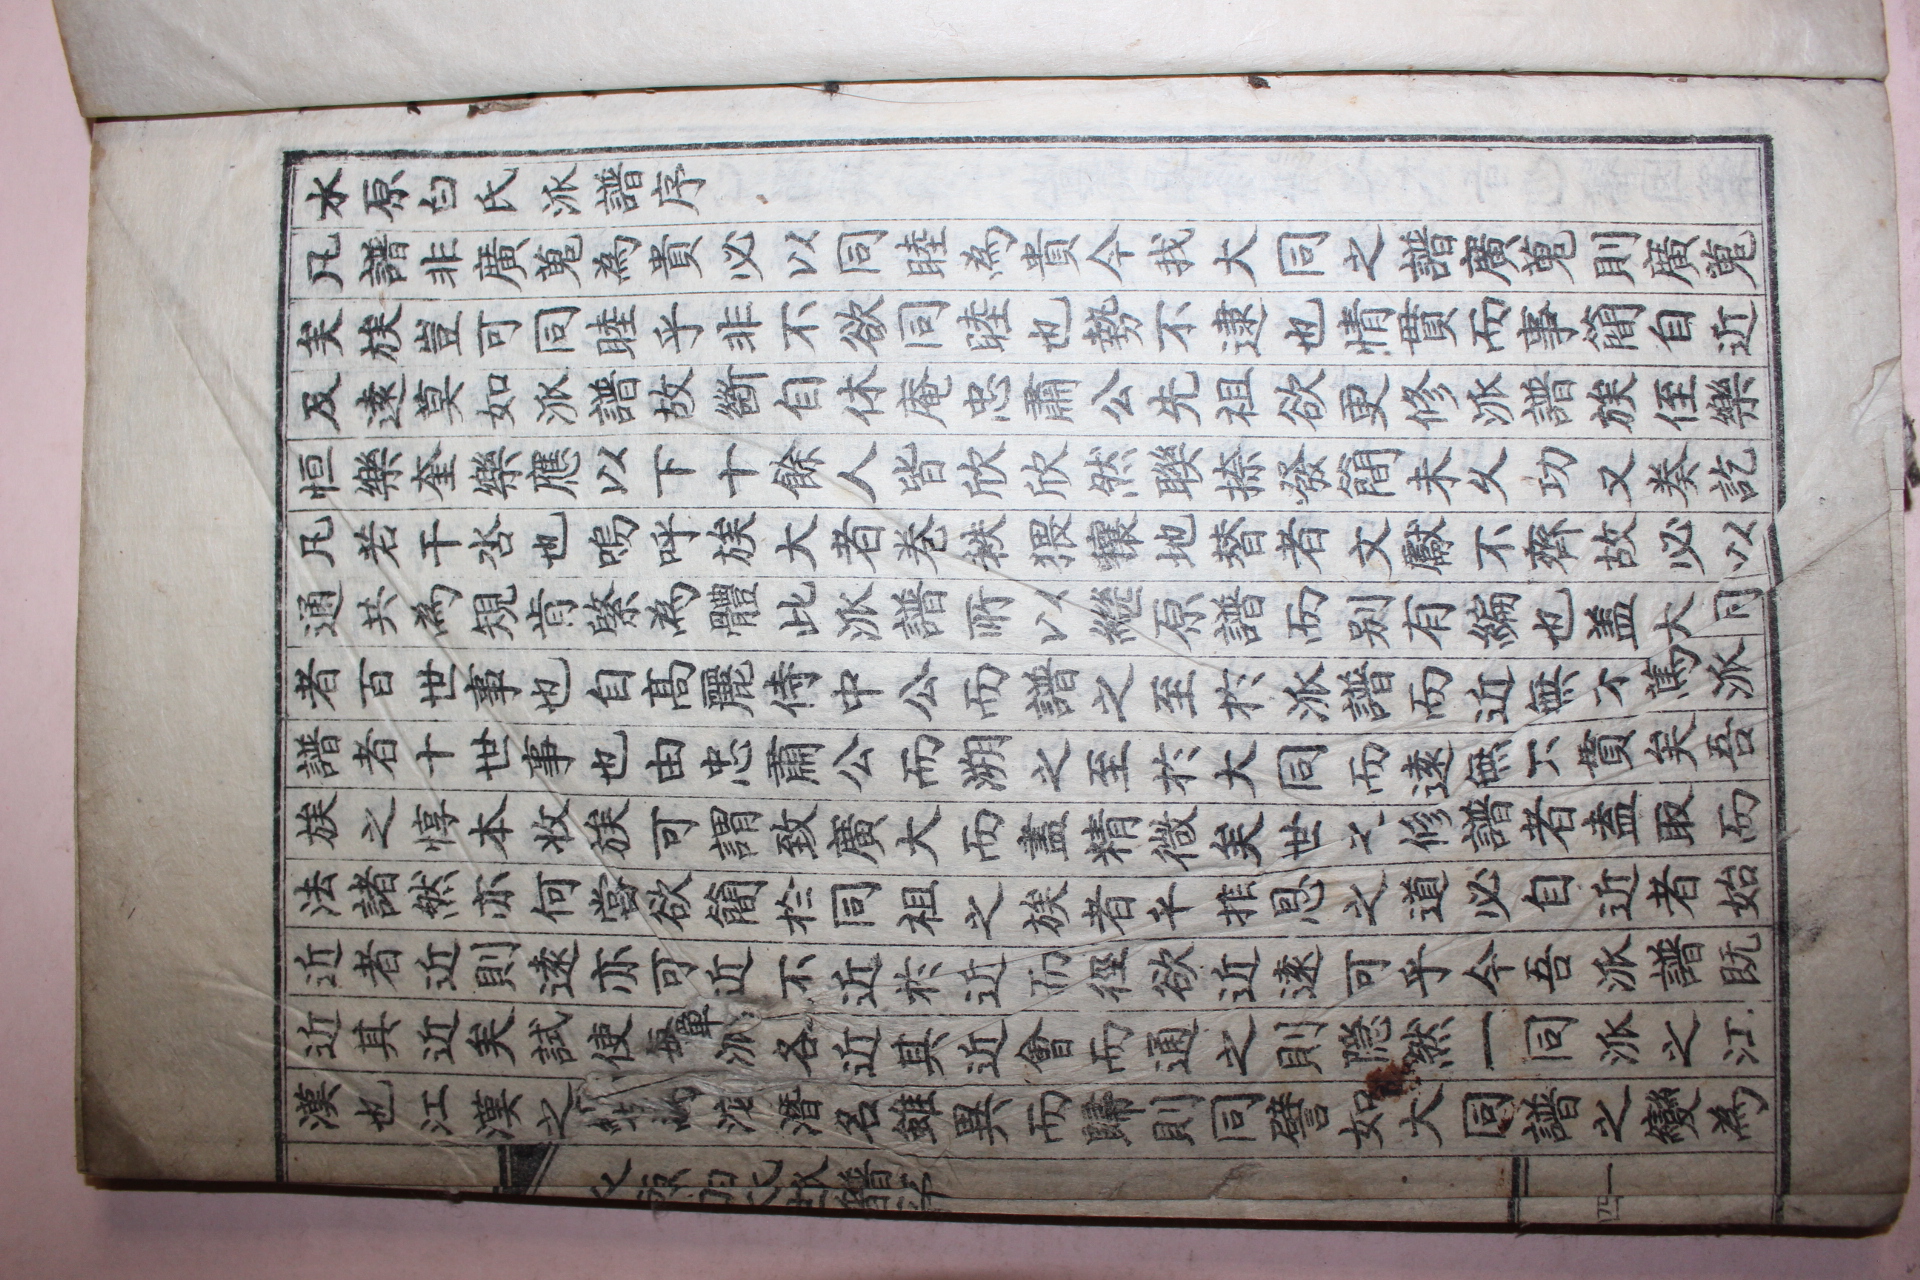 水原白氏派譜序
凡譜非廣蒐為貴必以同睦為貴今我大同之譜廣蒐則廣蒐
矣族豈可同睦乎非不欲同睦也勢不逮也情貫而事簡自近
及遠莫如派譜故斷自休庵忠肅公先祖欲更修派譜族侄樂
恒樂奎樂應以下十餘人皆欣欣然聯捺發簡未久功又奏訖
凡若干呇也嗚呼族大者卷帙猥穰地替者文獻不齊故必以
通共為規肯綮為體此派譜所以繼原譜而別有編也盖大同
者百世事也自高麗侍中公而譜之至於派譜而近無不萬派
譜者十世事也由忠肅公而溯之至於大同而遠無不貫矣吾
族之惇本收族可謂致廣大而盡精微矣世之修譜者盍取而
法諸然亦何嘗欲簡於同祖之族者乎推恩之道必自近者始
近者近則遠亦可近不近於近而徑欲近遠可乎今吾派譜既
近其近矣試使每單派各近其近會而通之則隱然一同派之江
漢也江漢之沱潛名雖異而歸則同譬如大同譜之變為
水原白氏派譜序
四一